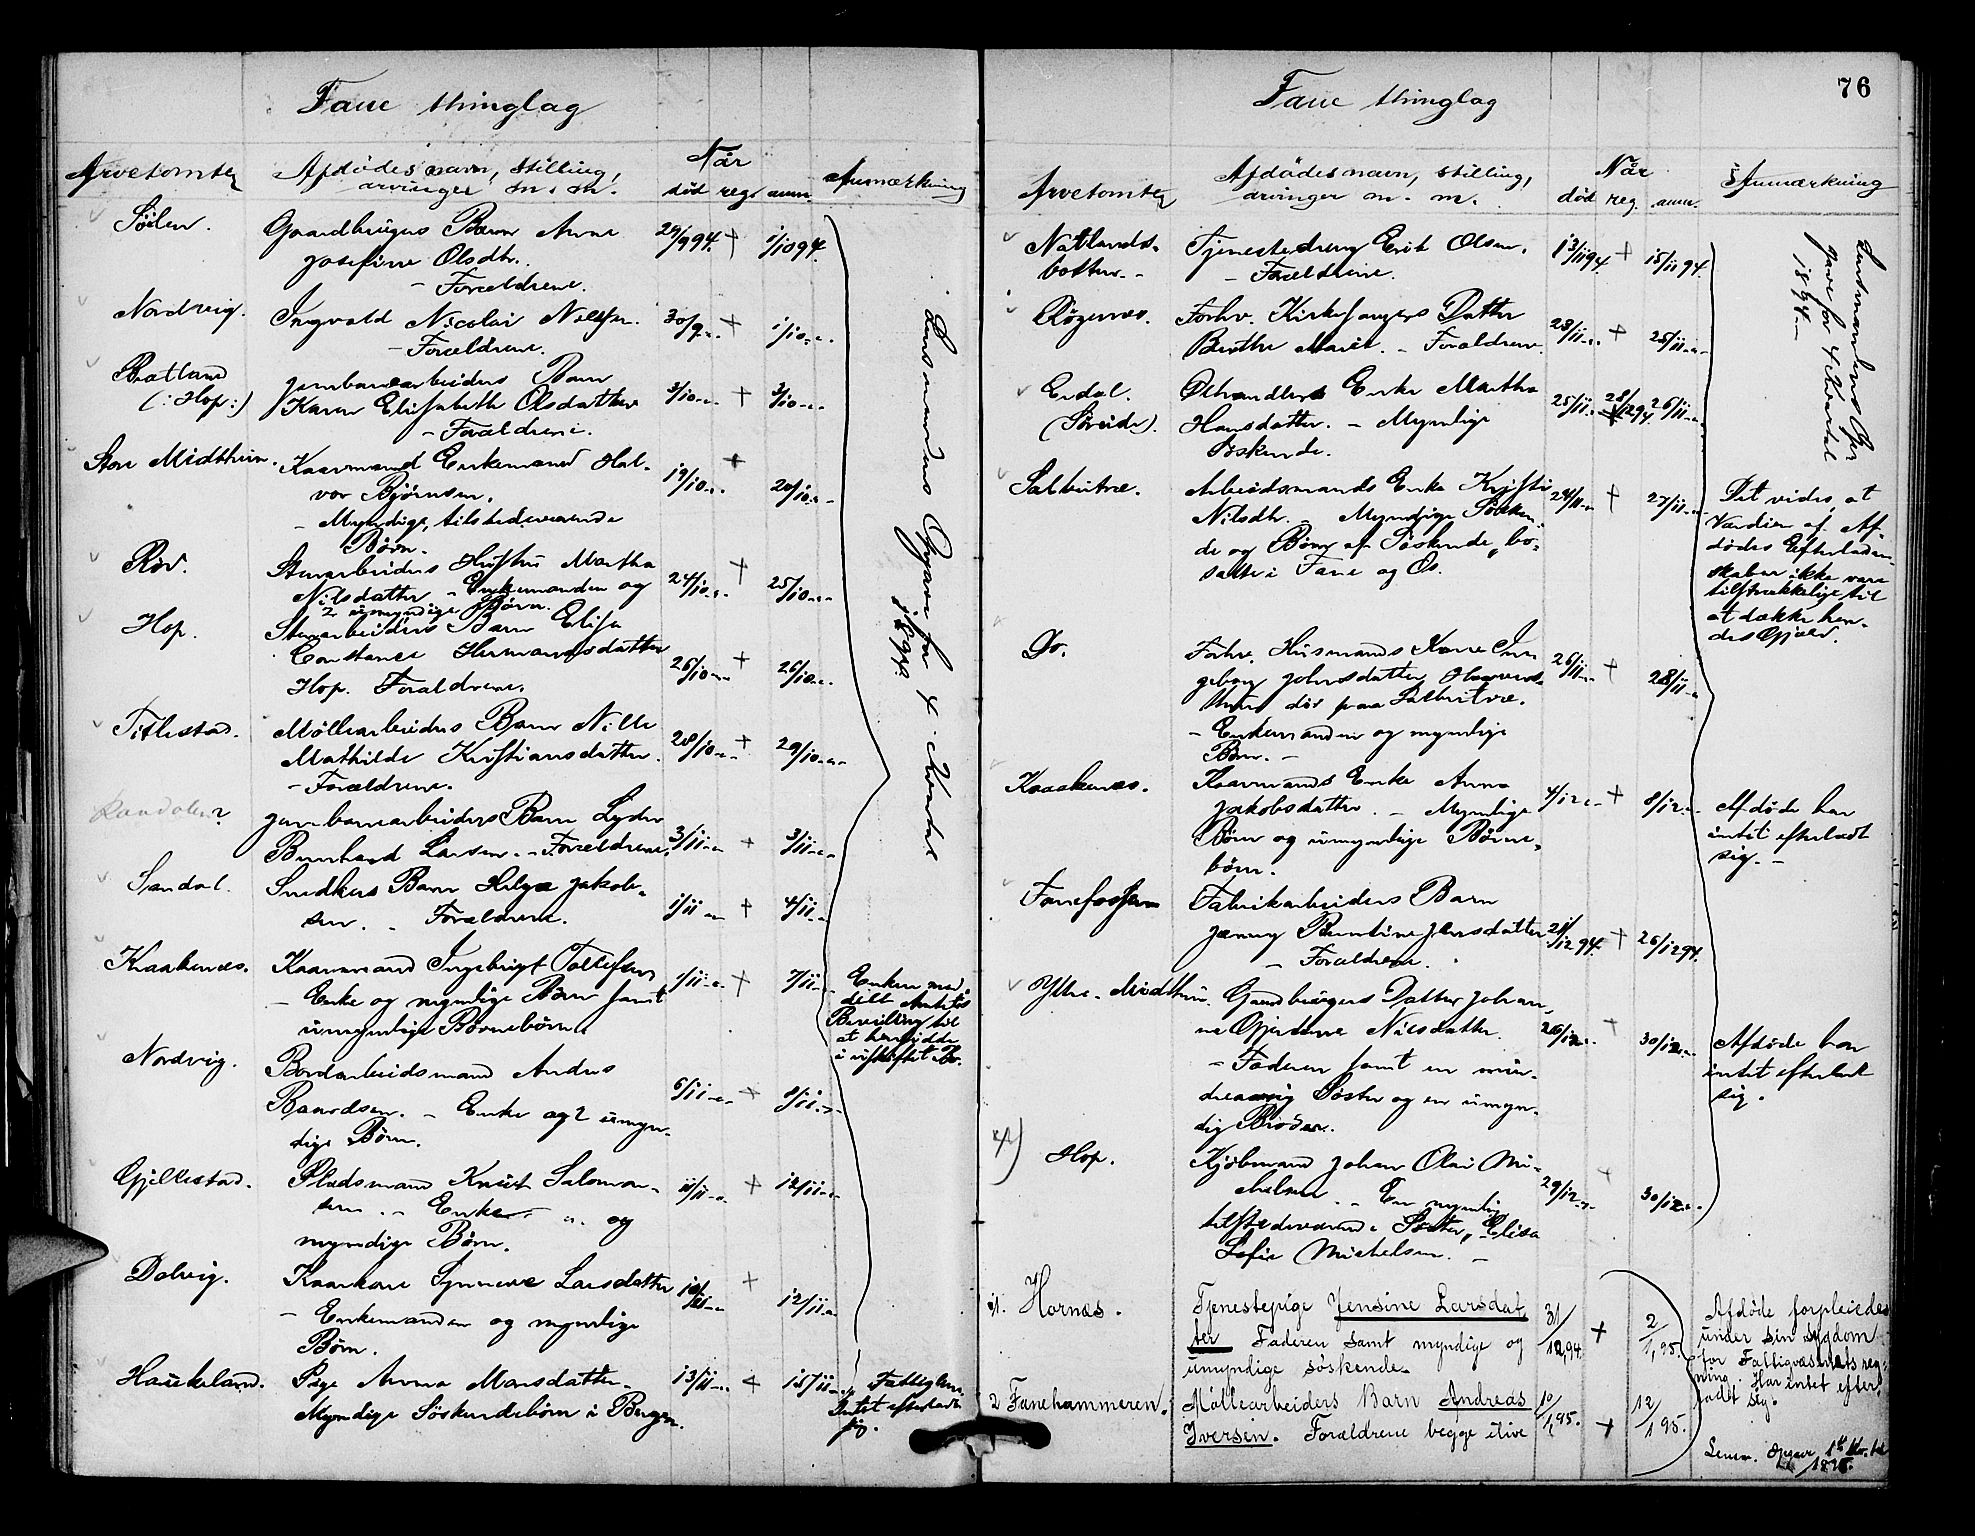 76
Fane thinglag
Arvetomter
Afdødes navn, stilling,
arvinger m. m.
Når
død reg. anm.
Anmærkning
Søilen.
Gaardbrugers Barn Anne
Josefine Olsdtr.
– Forældrene.
29/9 94. + 1/10 94.
Nordvig.
Ingvald Nicolai Nilsen.
– Forældrene.
30/9 „ + 1/10 „
Bratland
(: Hop :)
Jernbanearbeiders Barn
Karen Elisabeth Olsdatter
– Forældrene.
3/10 „ + 3/10 „
Store Midttun.
Kaarmand Enkemand Hal-
vor Bjørnsen.
– Myndige, tilstedeværende
Børn.
19/10 „ + 20/10 „
Røv.
Stenarbeiders Hustru Martha
Nilsdatter – Enkemanden og
2 umyndige Børn.
24/10 „ + 25/10 „
Hop.
Stenarbeiders Barn Elisa
Constance Hermansdatter
Hop. Forældrene.
26/10 „ + 26/10 „
Titlestad.
Møllearbeiders Barn Nille
Mathilde Kristiansdatter.
– Forældrene.
28/10 „ + 29/10 „
Sandalen?
Jernbanearbeiders Barn Lyder
Bernhard Larsen. – Forældrene.
3/11 „ + 3/11 „
Sandal.
Snedkers Barn Helge Jakob-
sen. – Forældrene.
1/11 „ + 4/11 „
Kraakenæs.
Kaarmand Ingebrigt Tollefsen
– Enke og myndige Børn samt
umyndige Børnebørn.
1/11 „ + 7/11 „
Enken med-
delt Amtets
Bevilling til
at hensidde
i uskiftet Bo.
Nordvig.
Bordarbeidsmand Anders
Baardsen. – Enke og 2 umyn-
dige Børn.
6/11 „ + 8/11 „
Gjellestad.
Pladsmand Knut Salomon-
sen. – Enke – „ og
myndige Børn.
11/11 „ + 12/11 „
Dolvig.
Kaarkone Synneve Larsdatter
– Enkemanden og myndige
Børn.
10/11 „ + 12/11 „
Haukeland.
Pige Anna Monsdatter –
Myndige Søskendebørn i Bergen.
13/11 „ + 15/11 „
Fattiglem.
Intet efterladt
sig.
Lensmandens Opgave for 4. Kvartal
1894.
Fane thinglag
Arvetomter
Afdødes navn, stilling,
arvinger m. m.
Når
død reg. anm.
Anmærkning
Natlands-
botten. –
Tjenestedreng Erik Olsen.
– Forældrene.
13/11 94. + 15/11 94.
Lensmandens Op-
gave for 4 Kvartal
1894 –
Forhv. Kirkesangers Datter
Berthe Marie. – Forældrene.
23/11 „ + 25/11 „
Erdal.
(Søreide).
Ølhandlers Enke Martha
Hansdatter. – Myndige
Søskende.
25/11 „ 28/12 94. 26/11 „
Salbutræ.
Arbeidsmands Enke Kristi
Nilsdtr. – Myndige Søsken-
de og Børn af Søskende, bo-
satte i Fane og Os.
24/11 „ + 27/11 „
Det vides, at
Værdien af Af-
dødes Efterladen-
skaber ikke være
tilstrækkelige til
at dække hen-
des Gjæld.
Do.
Forhv. Husmands Kone In-
geborg Johnsdatter
thun død paa Salbutræ.
– Enkemanden og myndige
Børn. –
26/11 „ + 28/11 „
Kraakenæs.
Kaarmands Enke Anna
Jakobsdatter. – Myndige
Børn og umyndige Børne-
børn.
4/12 „ + 8/12 „
Afdøde har
intet efterladt
sig. –
Fanefossen
Fabrikarbeiders Barn
Jenny Bentine Jensdatter
– Forældrene.
21/12 94. + 26/12 94.
Ytre-Midttun.
Gaardbrugers Datter Johan-
ne Gjertine Nilsdatter.
– Faderen samt en min-
dreaarig Søster og en umyn-
dig Broder.
26/12 „ + 30/12 „
Afdøde har
intet efterladt
sig.
Hop.
Kjøbmand Johan Olai Mi-
chelsen. – En myndig
tilstedeværende Søster, Elisa
Sofie Michelsen. –
29/12 „ + 30/12 „
1. Hornæs.
Tjenestepige Jensine Larsdat
ter Faderen samt myndige og
umyndige søskende.
31/12, 94. + 2/1, 95.
Afdøde forpleiedes
under sin sygdom
for Fattigvæsenets reg-
ning. Har intet efter-
ladt sig.
2 Fanehammeren.
Møllearbeiders Barn Andreas
Iversen. Forældrene begge ilive
10/1, 95. + 12/1 95.
Lensm. Opgave 1ste Kvartal
1895.